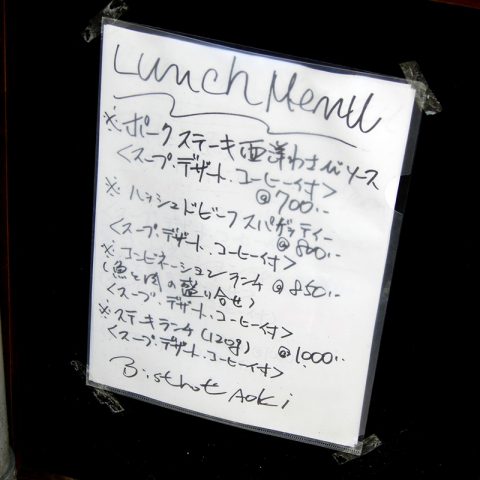 Lunch Menu
※ポークステーキ西洋わさびソース
<スープ.デザート.コーヒー付>
@700.-
※ハッシュドビーフスパゲッティー
@800.-
<スープ.デザート.コーヒー付>
※コンビネーションランチ @850.-
(魚と肉の盛り合せ)
<スープ.デザート.コーヒー付>
※ステーキランチ(120g) @1,000.-
<スープ.デザート.コーヒー付>
Bistrot Aoki